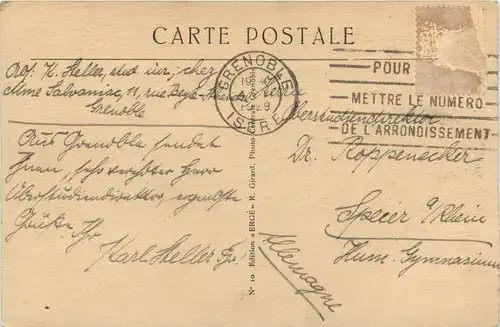 CARTE POSTALE
GRENOBLE
1929
ISÈRE
POUR
METTRE LE NUMERO
DE L'ARRONDISSEMENT
K. Heller, stud iur, chez
Mme Salvaniac, 11, rue
Grenoble
Aus Grenoble sendet
Ihnen, sehr verehrter Herr
Oberstudiendirektor, ergebenste
Grüße Ihr
Karl Heller
Herrn
Oberstudiendirektor
Dr. Roppenecker
Speier a/Rhein
Hum. Gymnasium
Allemagne
N° 10 Edition "ERGÉ" R. Girard, Photo